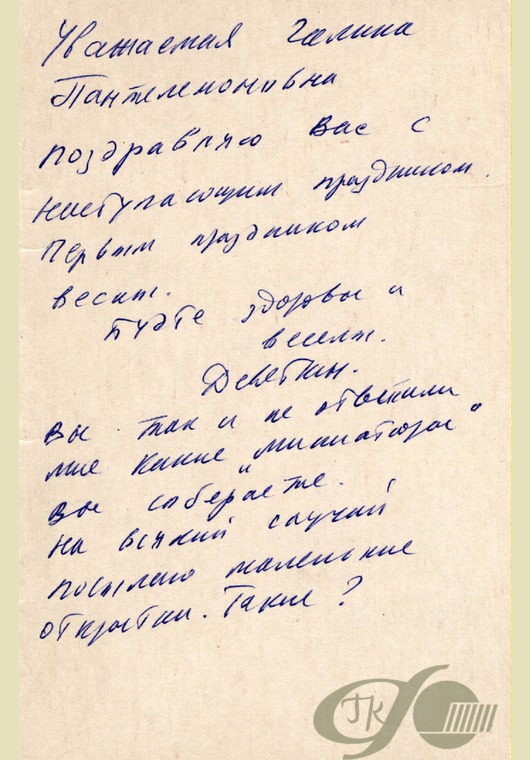 Уважаемая Галина
Пантелемоновна
поздравляю Вас с
наступающим праздником.
Первым праздником
весны.
Будте здоровы и
веселы.
Деветкин.
Вы так и не ответили
мне какие „миниатюры"
Вы собераете.
На всякий случай
посылаю маленькие
открытки. Такие?
ГК